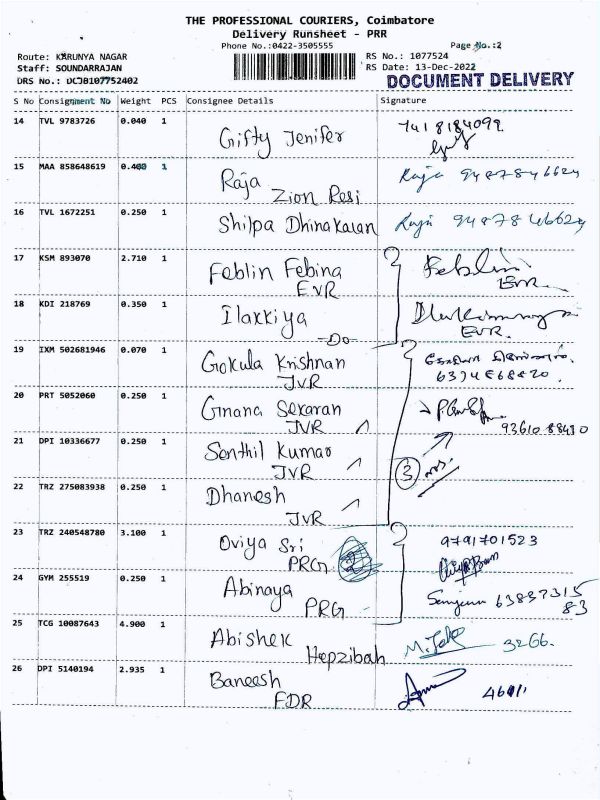 THE PROFESSIONAL COURIERS, Coimbatore
Delivery Runsheet - PRR
Phone No.:0422-3505555 Page No.:2
Route: KARUNYA NAGAR RS No.: 1077524
Staff: SOUNDARRAJAN RS Date: 13-Dec-2022
DRS No.: DCJB107752402 DOCUMENT DELIVERY
S No Consignment No Weight PCS Consignee Details Signature
14 TVL 9783726 0.040 1 Gifty Jenifer 7418184099
15 MAA 858648619 0.400 1 Raja Raja 9487846624
Zion Resi
16 TVL 1672251 0.250 1 Shilpa Dhinakaran Raja 9487846624
17 KSM 893070 2.710 1 Feblin Febina Feblin
EVR EVR
18 KDI 218769 0.350 1 Ilakkiya
-Do- EVR.
19 IXM 502681946 0.070 1 Gokula Krishnan
JVR
20 PRT 5052060 0.250 1 Gnana Sekaran
JVR 9361088430
21 DPI 10336677 0.250 1 Senthil Kumar
JVR 3 nos.
22 TRZ 275083938 0.250 1 Dhanesh
JVR
23 TRZ 240548780 3.100 1 Oviya Sri 9791701523
PRG 2
24 GYM 255519 0.250 1 Abinaya
PRG 63837315
83
25 TCG 10087643 4.900 1 Abishek
Hepzibah 3266.
26 DPI 5140194 2.935 1 Baneesh
FDR